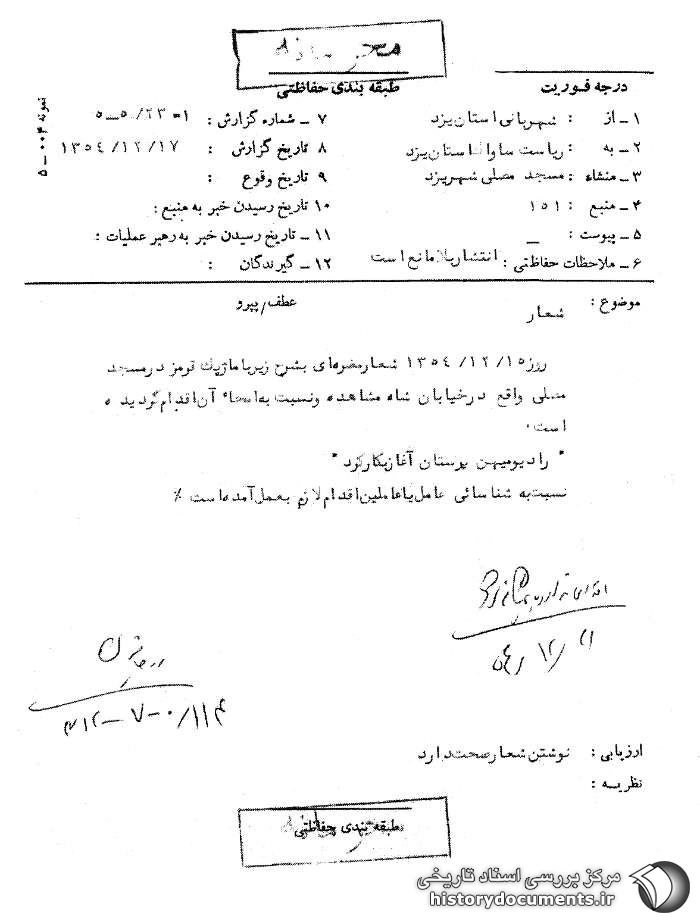 محرمانه
طبقه بندی حفاظتی
درجه فوریت
نمونه ۰۰۴ – ۵
۱ – از : شهربانی استان یزد
۲ – به : ریاست ساواک استان یزد
۳ – منشاء : مسجد مصلی شهر یزد
۴ – منبع : ۱۵۱
۵ – پیوست : –
۶ – ملاحظات حفاظتی : انتشار بلامانع است
۷ – شماره گزارش : ۵–۵/۲۳=۱
۸ تاریخ گزارش : ۱۳۵۴/۱۲/۱۷
۹ تاریخ وقوع :
۱۰ تاریخ رسیدن خبر به منبع :
۱۱ – تاریخ رسیدن خبر به رهبر عملیات :
۱۲ – گیرندگان :
موضوع : شعار
عطف/پیرو
روز ۱۵/ ۱۲/ ۱۳۵٤ شعار مضره‌ای بشرح زیر با ماژیک قرمز در مسجد
مصلی واقع در خیابان شاه مشاهده و نسبت به امحاء آن اقدام گردیده
است .
" رادیو میهن پرستان آغاز بکار کرد "
نسبت به شناسائی عامل یا عاملین اقدام لازم بعمل آمده است ٪
۵٤/ ۱۲/ ۲۱
۳۱۲–۷–۰/۱۱۴
ارزیابی : نوشتن شعار صحت دارد
نظریه :
طبقه بندی حفاظتی
مرکز بررسی اسناد تاریخی
historydocuments.ir